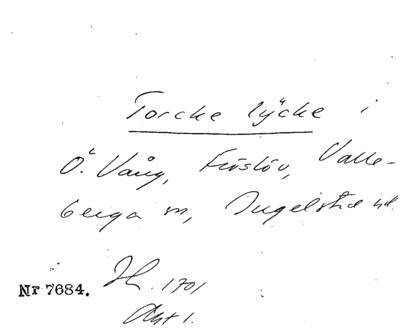 Torcke lycke i
Ö. Vång, Fröslöv, Valle-
berga sn, Ingelstad hd.
Nr 7684. 1701
Akt 1.